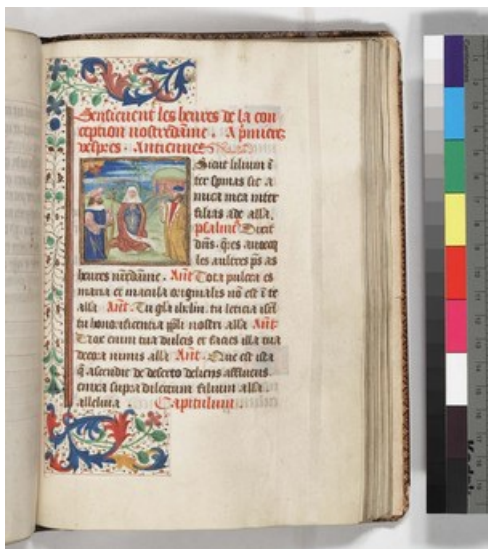 Sensieuent les heures de la con
ception nostredame. A pmiers
vespres. Antienne
Sicut lilium ī
ter spinas sic a
mica mea inter
filias ade alla.
psalme Dixit
dns. qes autecq
les aultres ps as
heures nredame. Ant Tota pulcra es
maria et macula originalis nō est ī te
alla Ant. Tu gla ihrlm. tu leticia isrl
tu honorificentia ppli nostri alla Ant
Uox enim tua dulcis et facies illa tua
decora nimis alla Ant. Que est ista
q ascendit de deserto delicijs affluens
enixa supra dilectum filium alla.
alleluia. Capitulum.